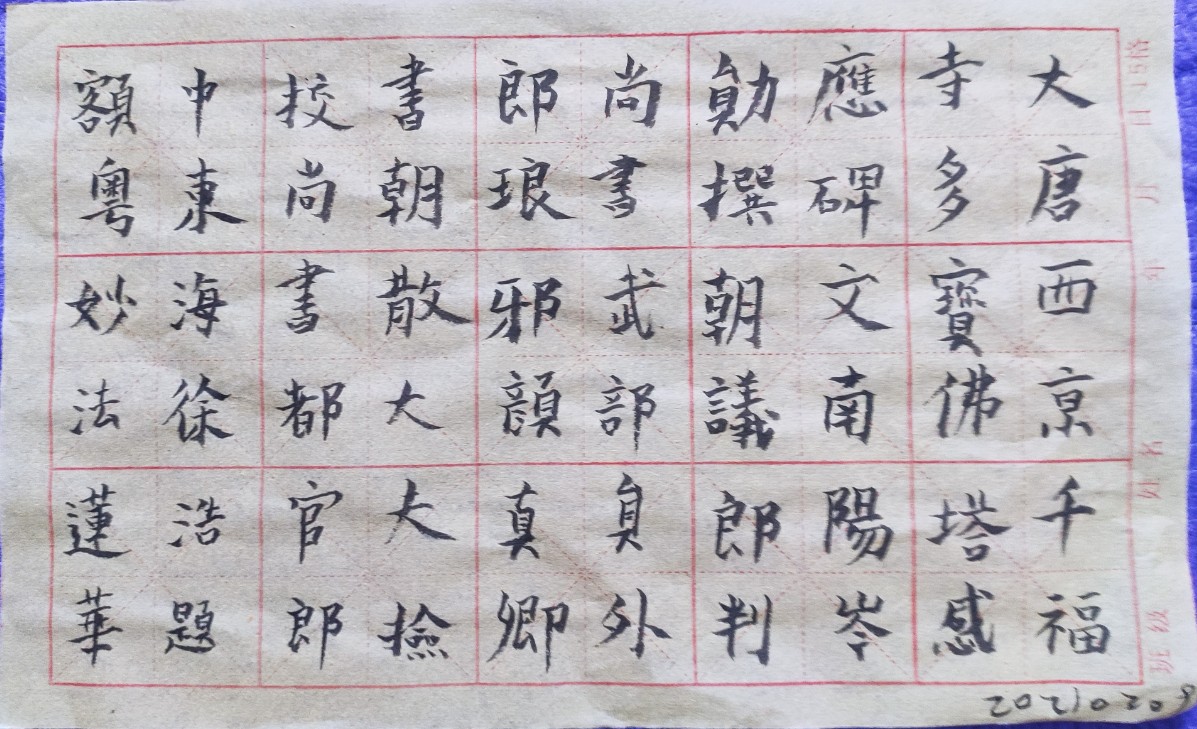 大唐西京千福
寺多寶佛塔感
應碑文南陽岑
勛撰朝議郎判
尚書武部員外
郎琅邪顏真卿
書朝散大夫撿
挍尚書都官郎
中東海徐浩題
額粵妙法蓮華
班级 姓名 年 月 日
20210209